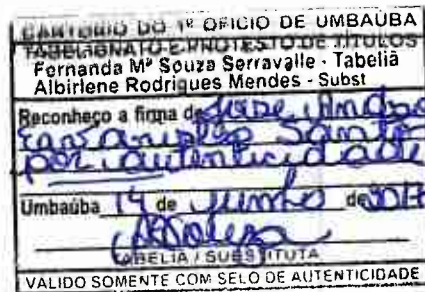 CARTORIO DO 1º OFICIO DE UMBAÚBA
TABELIONATO E PROTESTO DE TITULOS
Fernanda Mª Souza Serravalle - Tabeliã
Albirlene Rodrigues Mendes - Subst
Reconheço a firma de Jose
Santos
por autenticidade
Umbaúba 14 de junho de
TABELIA / SUBSTITUTA
VALIDO SOMENTE COM SELO DE AUTENTICIDADE